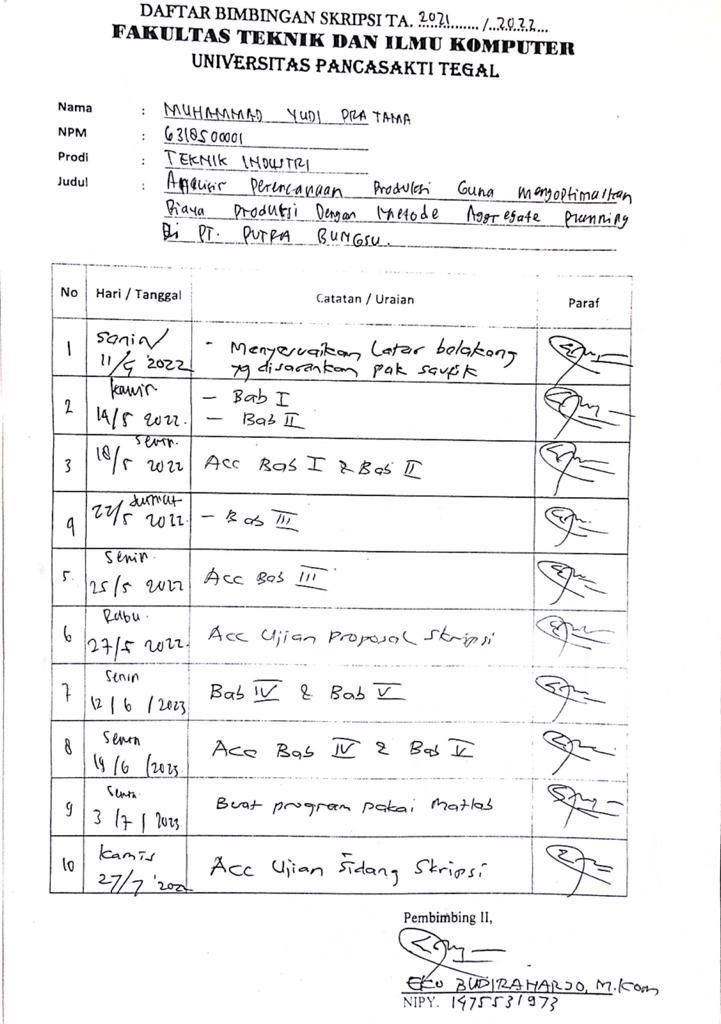 DAFTAR BIMBINGAN SKRIPSI TA. 2021....../..2022...
FAKULTAS TEKNIK DAN ILMU KOMPUTER
UNIVERSITAS PANCASAKTI TEGAL
Nama : MUHAMMAD YUDI PRATAMA
NPM : 6318500001
Prodi : TEKNIK INDUSTRI
Judul : Analisis Perencanaan Produksi Guna Mengoptimalkan
Biaya Produksi Dengan Metode Aggregate Planning
Di PT. PUTRA BUNGSU.
No Hari / Tanggal Catatan / Uraian Paraf
1 Senin 2022 - Menyesuaikan Latar belakang
yg disarankan pak
2 Kamis 14/5 2022 - Bab I
- Bab II
3 Senin 18/5 2022 Acc Bab I & Bab II
4 Jum'at 22/5 2022 - Bab III
5. Senin 25/5 2022 Acc Bab III
6 Rabu 27/5 2022 Acc Ujian Proposal Skripsi
7 Senin 12/6/2023 Bab IV & Bab V
8 Senin 19/6/2023 Acc Bab IV & Bab V
9 Senin 3/7/2023 Buat program pakai Matlab
10 Kamis 27/7 Acc Ujian Sidang Skripsi
Pembimbing II,
EKO BUDIRAHARJO, M.Kom
NIPY. 1475531973